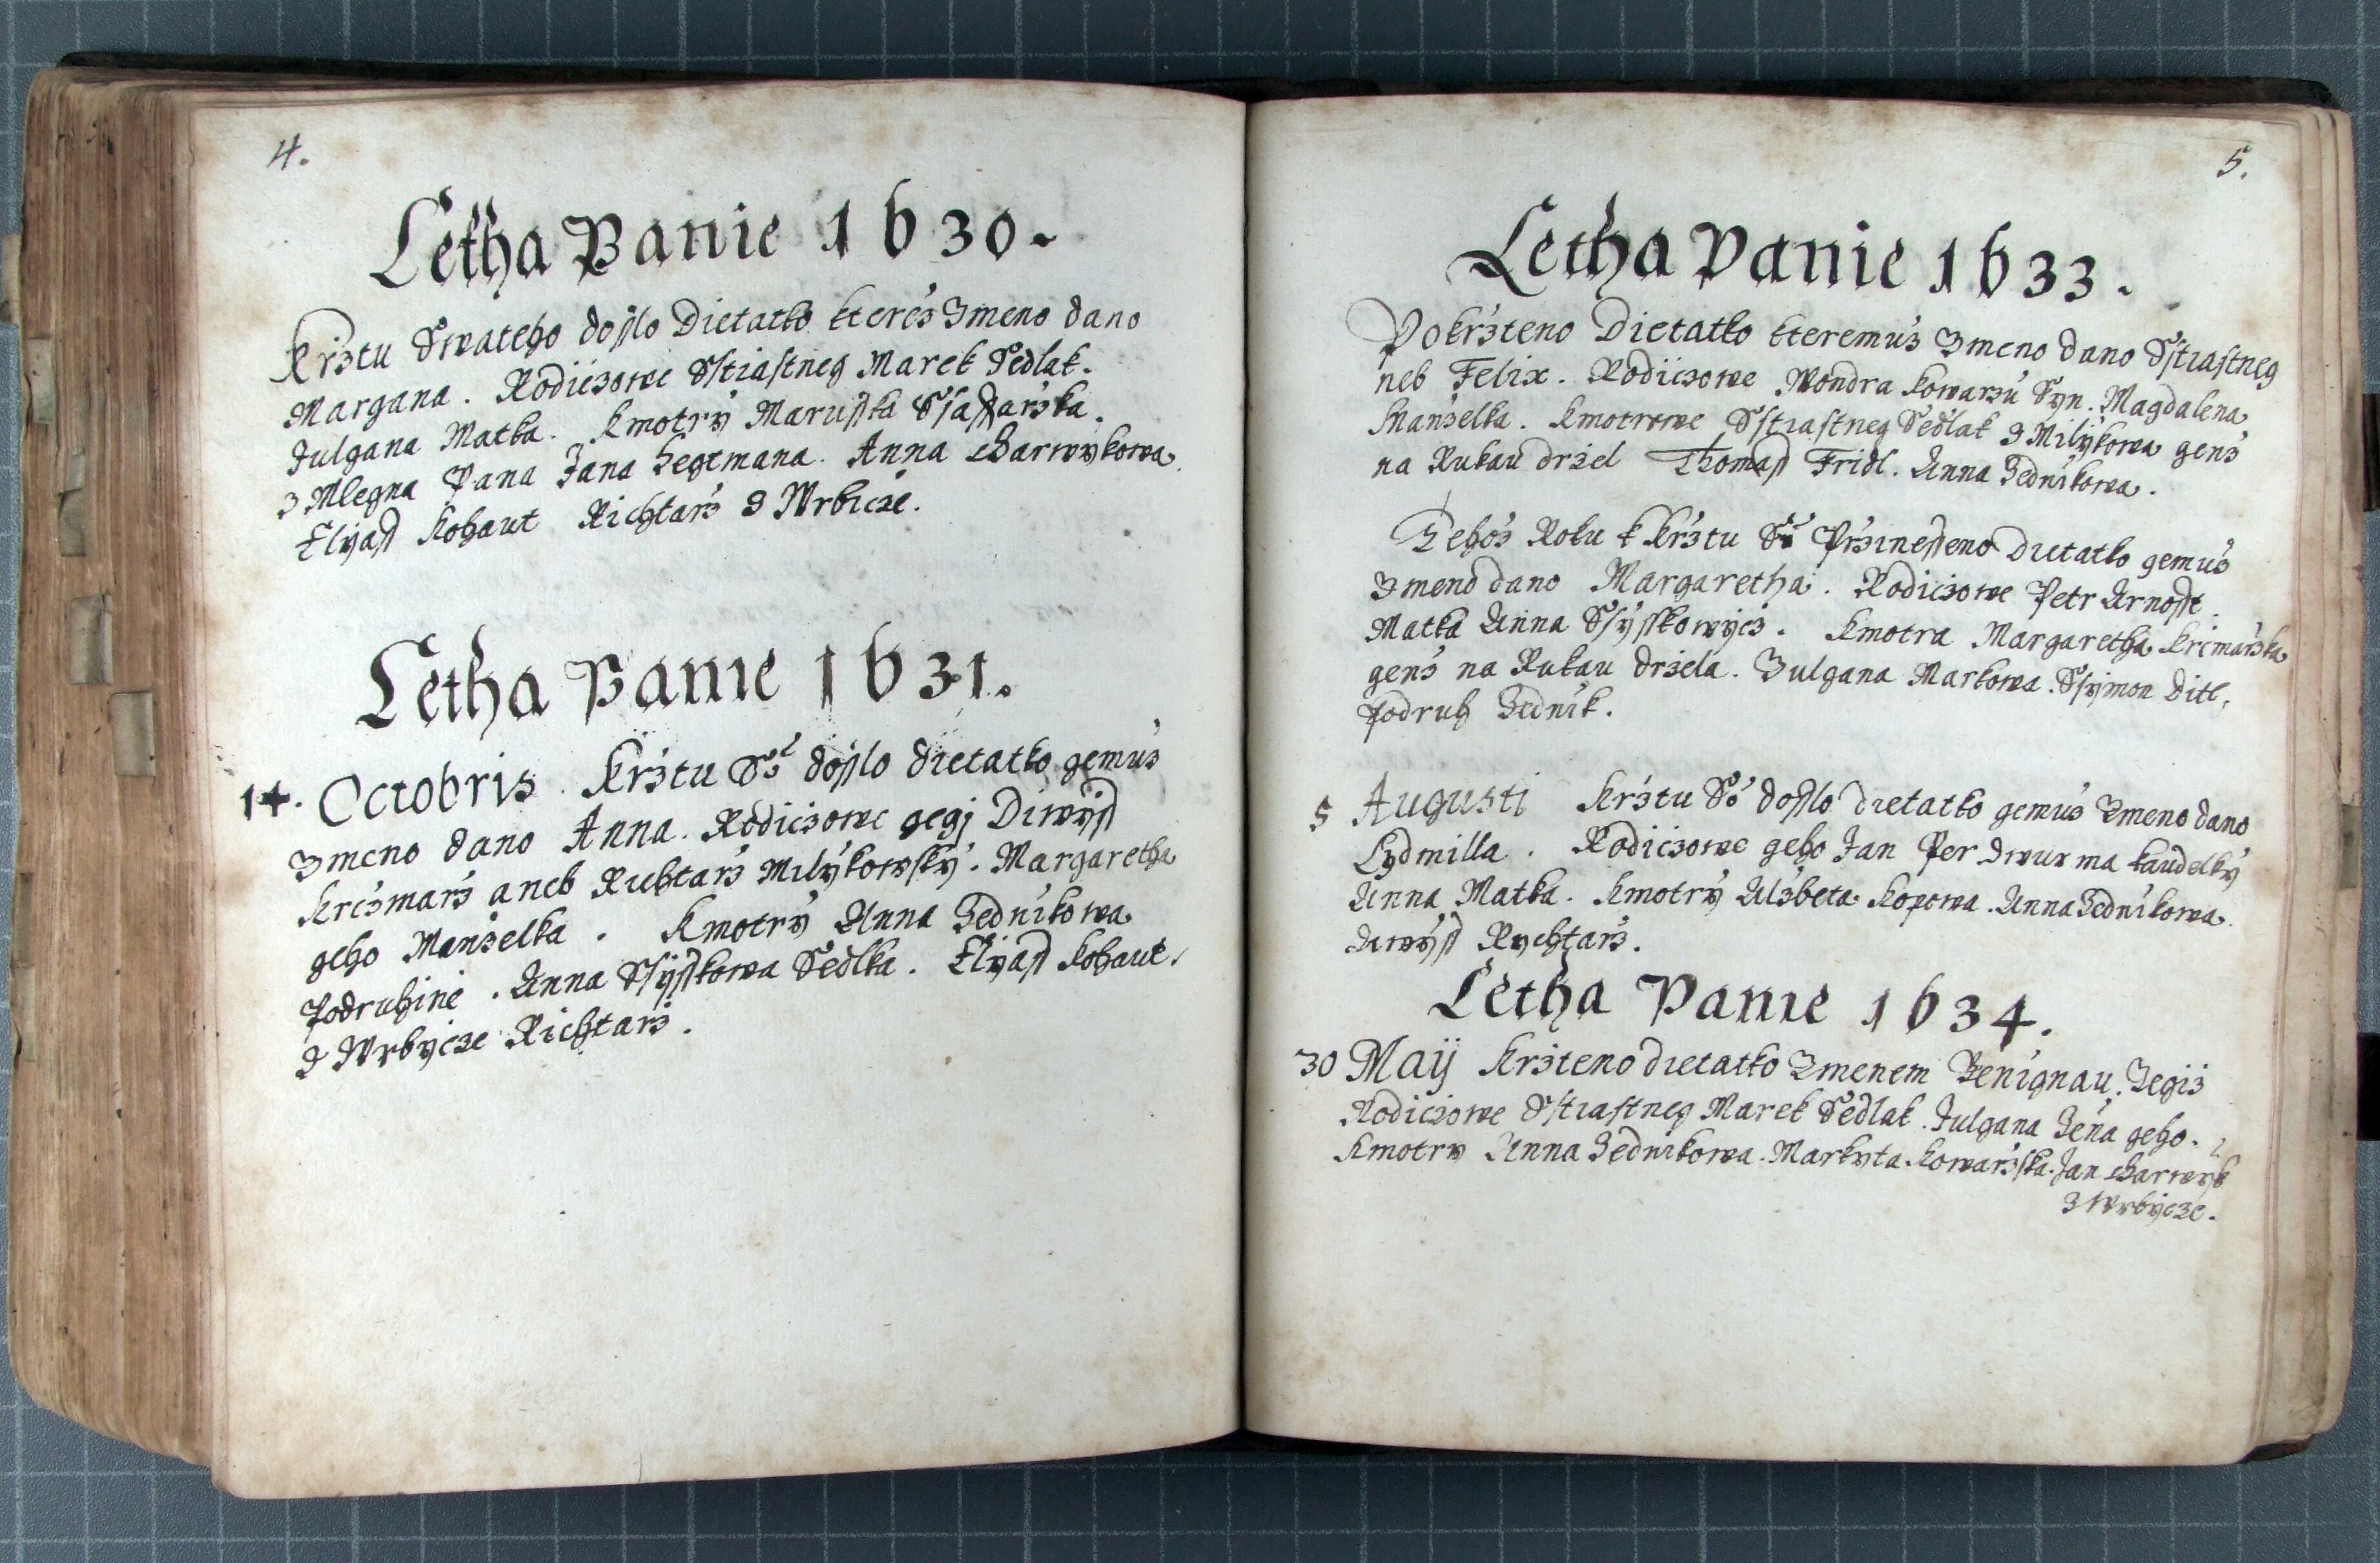 4.
Letha Panie 1630.
Krztu Swateho dosslo Dietatko kterez Jmeno dano
Margana. Rodiczowe Sstiastneg Marek Sedlak.
Julgana Matka. Kmotrý Marusska Ssaffarzka
z Mlegna Pana Jana Hegtmana. Anna Charwýkowa
Elyass Kohaut Richtarz z Wrbicze.
Letha Panie 1631.
14. Octobris Krztu Sº dosslo dietatko gemuz
Jmeno dano Anna. Rodiczowe gegj Diwýss
Krczmarz aneb Richtarz Milýkowský. Margaretha
geho Manzelka. Kmotrý Anna Zednikowa
Podruhine. Anna Ssýsskowa Sedlka. Elyass Kohaut,
z Wrbycze Richtarz.
5.
Letha Panie 1633.
Pokrzteno Dietatko kteremuz Jmeno dano Sstiastneg
neb Felix. Rodiczowe Wondra Kowarzu Syn. Magdalena
Manzelka. Kmotrowe Sstiastneg Sedlak z Milýkowa genz
na Rukau drzel Thomass Fridl. Anna Zednikowa.
Tehoz Roku k Krztu Sº Przinesseno dietatko gemuz
Jmeno dano Margaretha. Rodiczowe Petr Arnosst.
Matka Anna Ssysskowycz. Kmotra Margaretha Krcmarzka
genz na Rukau drzela. Julgana Markowa. Ssymon Ditl,
Podruh Zednik.
5 Augusti Krztu Sº dosslo dietatko gemuz Jmeno dano
Lydmilla. Rodiczowe geho Jan Per dwur ma kaudelký
Anna Matka. Kmotrý Alzbeta Kopowa. Anna Zednikowa.
Diwýss Rychtarz.
Letha Panie 1634.
30 Maÿ Krzteno dietatko Jmenem Benignau. Gegiz
Rodiczowe Sstiastneg Marek Sedlak. Julgana Zena geho.
Kmotry Anna Zednikowa. Markyta Kowarzska. Jan Charwyk
z Wrbýcze.